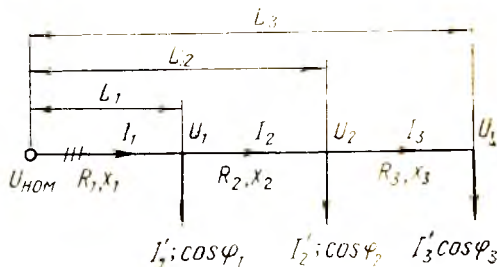 L₃
L₂
L₁
I₁ U₁ I₂ U₂ I₃ U₃
Uном R₁,x₁ R₂,x₂ R₃,x₃
I₁′;cosφ₁ I₂′;cosφ₂ I₃′ cosφ₃